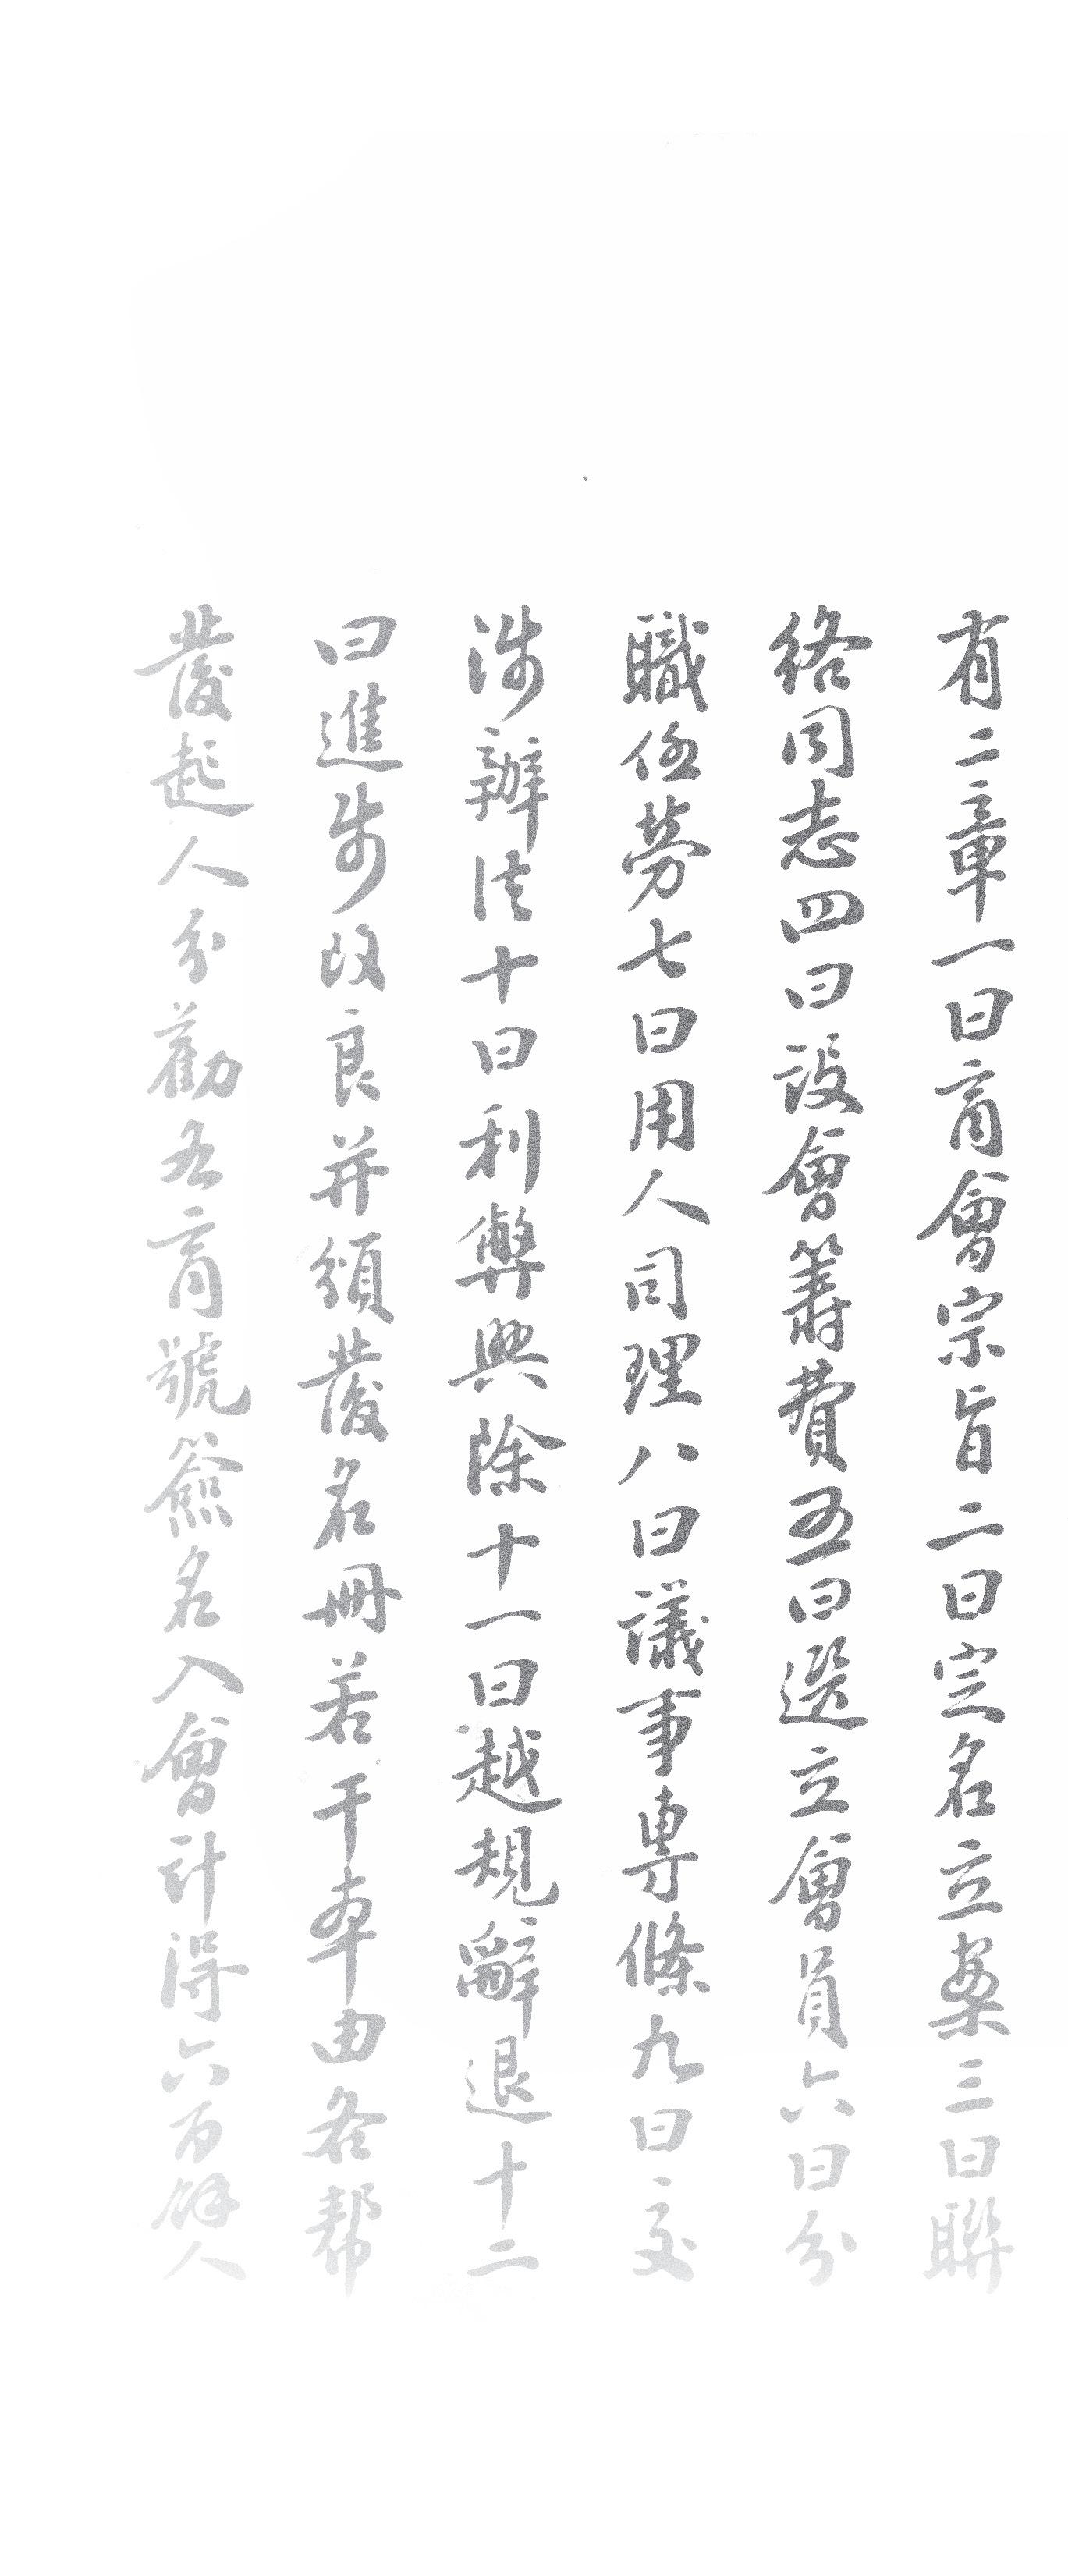 有二章一曰商會宗旨二曰定名立案三曰聯
絡同志四曰設會籌費五曰選立會員六曰分
職任勞七曰用人司理八曰議事專條九曰交
涉辦法十曰利弊興除十一曰越規辭退十二
曰進步改良并頒發名冊若干本由各幫
發起人分勸各商號簽名入會計得六百餘人